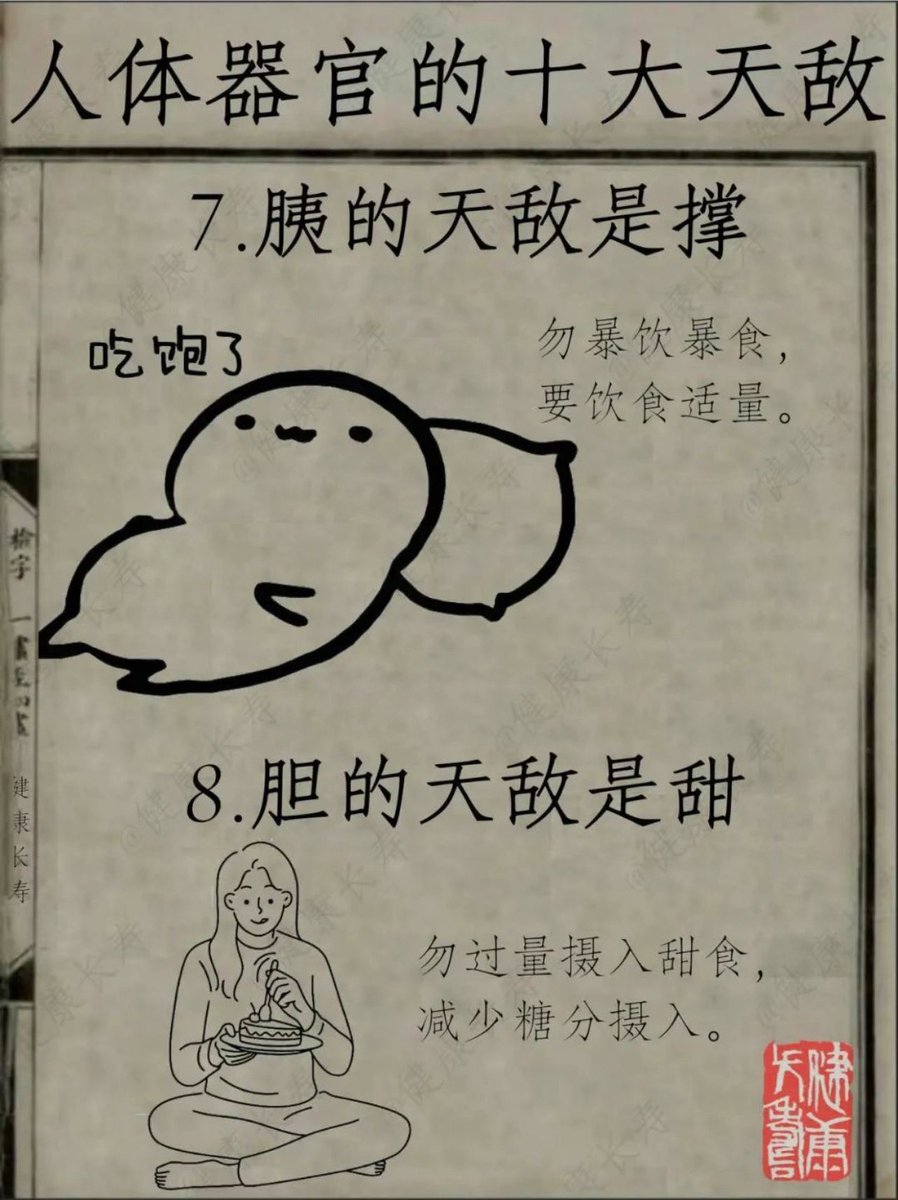 人体器官的十大天敌
7.胰的天敌是撑
吃饱了
勿暴饮暴食，
要饮食适量。
8.胆的天敌是甜
勿过量摄入甜食，
减少糖分摄入。
檢字
一
健康长寿
健康长寿
@健康长寿